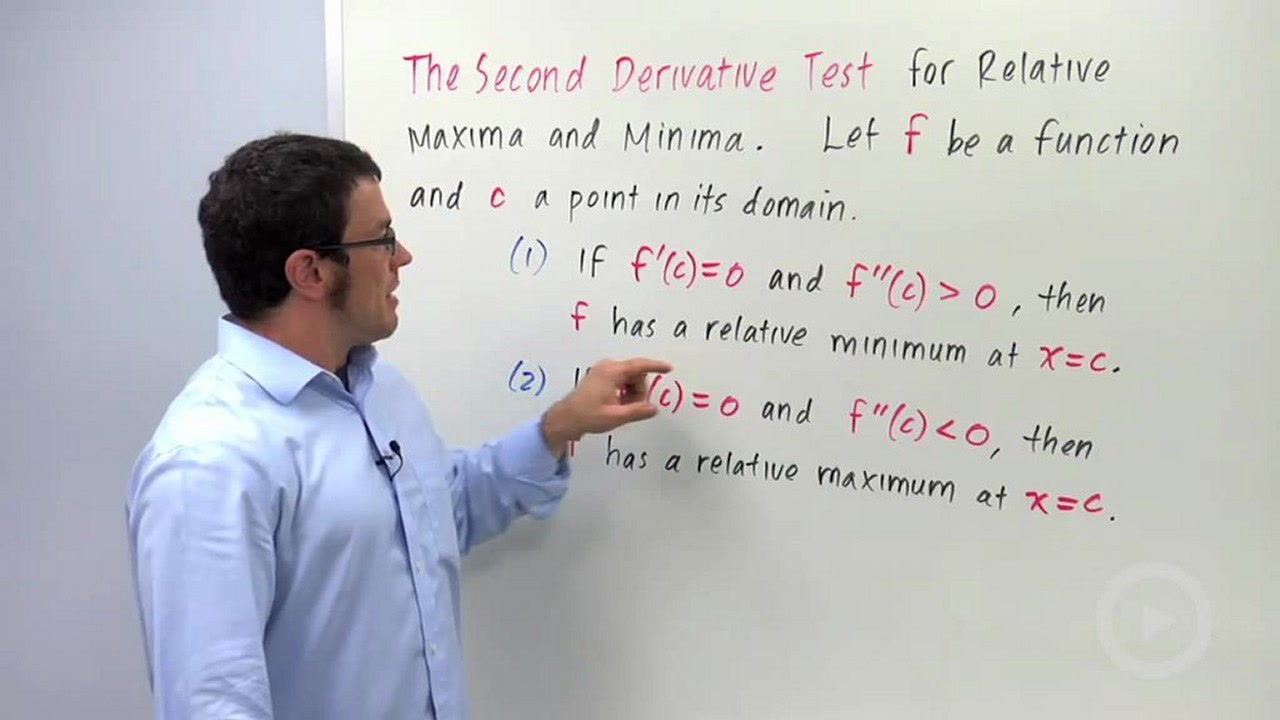 The Second Derivative Test for Relative
Maxima and Minima. Let f be a function
and c a point in its domain.
(1) If f'(c)=0 and f''(c) > 0, then
f has a relative minimum at x=c.
(2) (c)=0 and f''(c)<0, then
has a relative maximum at x=c.